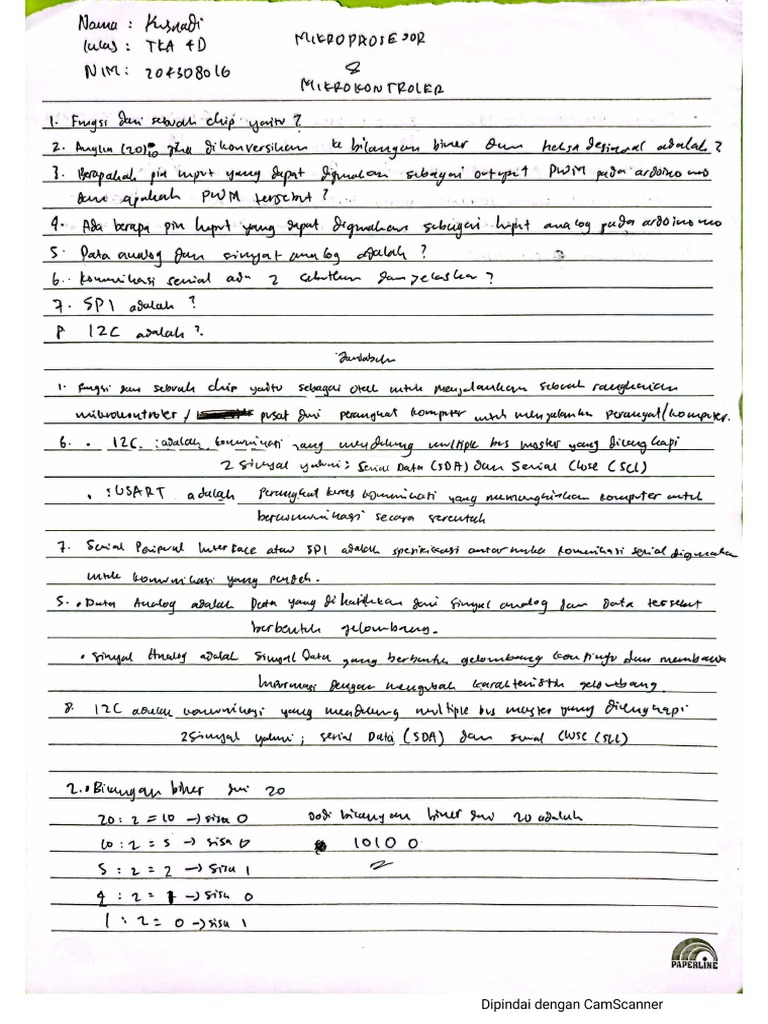 Nama : Kusnadi
Kelas : TKA 4D
NIM : 204308016
MIKROPROSESOR
&
MIKROKONTROLER
1. Fungsi dari sebuah chip yaitu ?
2. Angka (20)10 jika dikonversikan ke bilangan biner dan heksa desimal adalah ?
3. Berapakah pin input yang dapat digunakan sebagai output PWM pada arduino uno
dan apakah PWM tersebut ?
4. Ada berapa pin input yang dapat digunakan sebagai input analog pada arduino uno
5. Data analog dan sinyal analog adalah ?
6. Komunikasi serial ada 2 sebutkan dan jelaskan ?
7. SPI adalah ?
8 I2C adalah ?
Jawaban
1. Fungsi dari sebuah chip yaitu sebagai otak untuk menjalankan sebuah rangkaian
mikrokontroler / pusat dari perangkat komputer untuk menjalankan perangkat/komputer.
6. • I2C : adalah komunikasi yang mendukung multiple bus master yang dilengkapi
2 Sinyal yakni : Serial Data (SDA) dan Serial (SCL)
• : USART adalah perangkat keras komunikasi yang memungkinkan komputer untuk
berkomunikasi secara serentak
7. Serial Interface atau SPI adalah spesifikasi antar muka komunikasi serial digunakan
untuk komunikasi yang pendek.
5. • Data Analog adalah Data yang dari sinyal analog dan data tersebut
berbentuk gelombang.
• Sinyal Analog adalah Sinyal Data yang berbentuk gelombang kontinyu dan membawa
Informasi dengan mengubah karakteristik gelombang.
8. I2C adalah komunikasi yang mendukung multiple bus master yang dilengkapi
2 Sinyal yakni ; serial Data (SDA) dan serial (SCL)
2. • Bilangan biner dari 20
20 : 2 = 10 → sisa 0 Jadi bilangan biner dari 20 adalah
10 : 2 = 5 → sisa 0 10100
5 : 2 = 2 → sisa 1
: 2 = 1 → sisa 0
1 : 2 = 0 → sisa 1
PAPERLINE
Dipindai dengan CamScanner